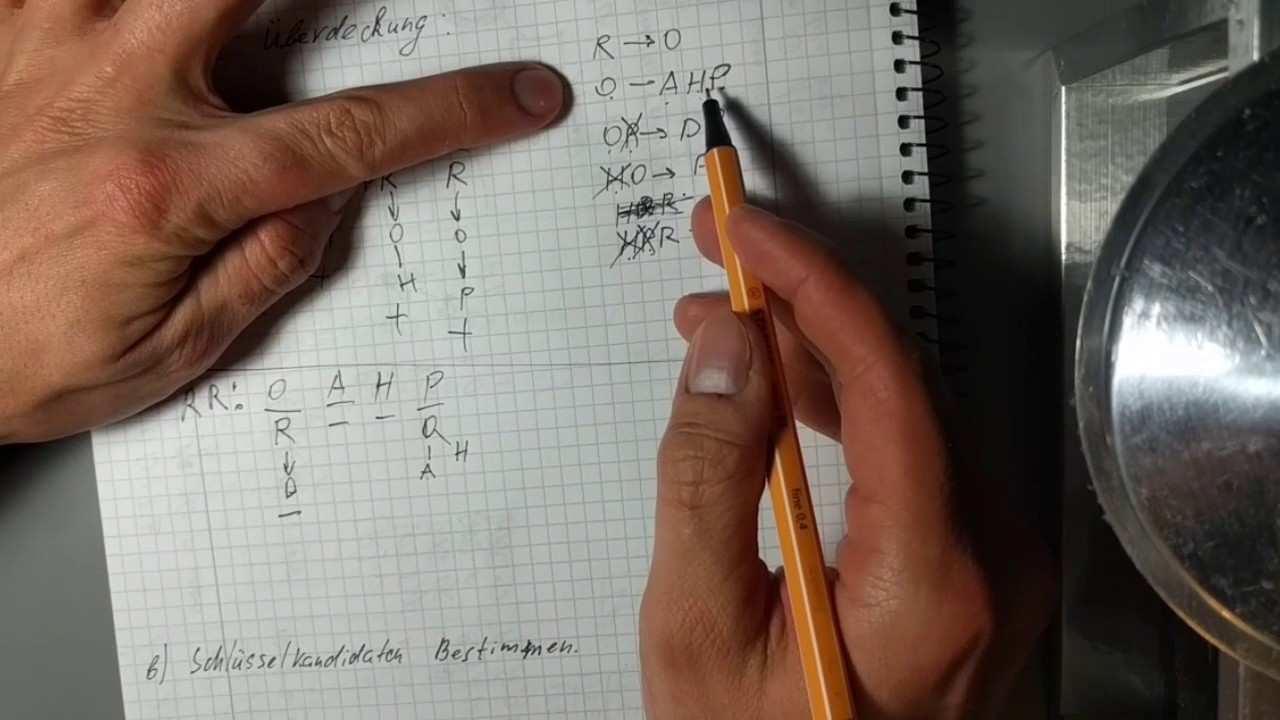 Überdeckung:
R → O
O – A H P
O → D
O →
R
R R
↓ ↓
O O
| ↓
H P
+ +
RR: O A H P
R Q
↓ | H
D A
b) Schlüsselkandidaten Bestimmen.
fine 0,4